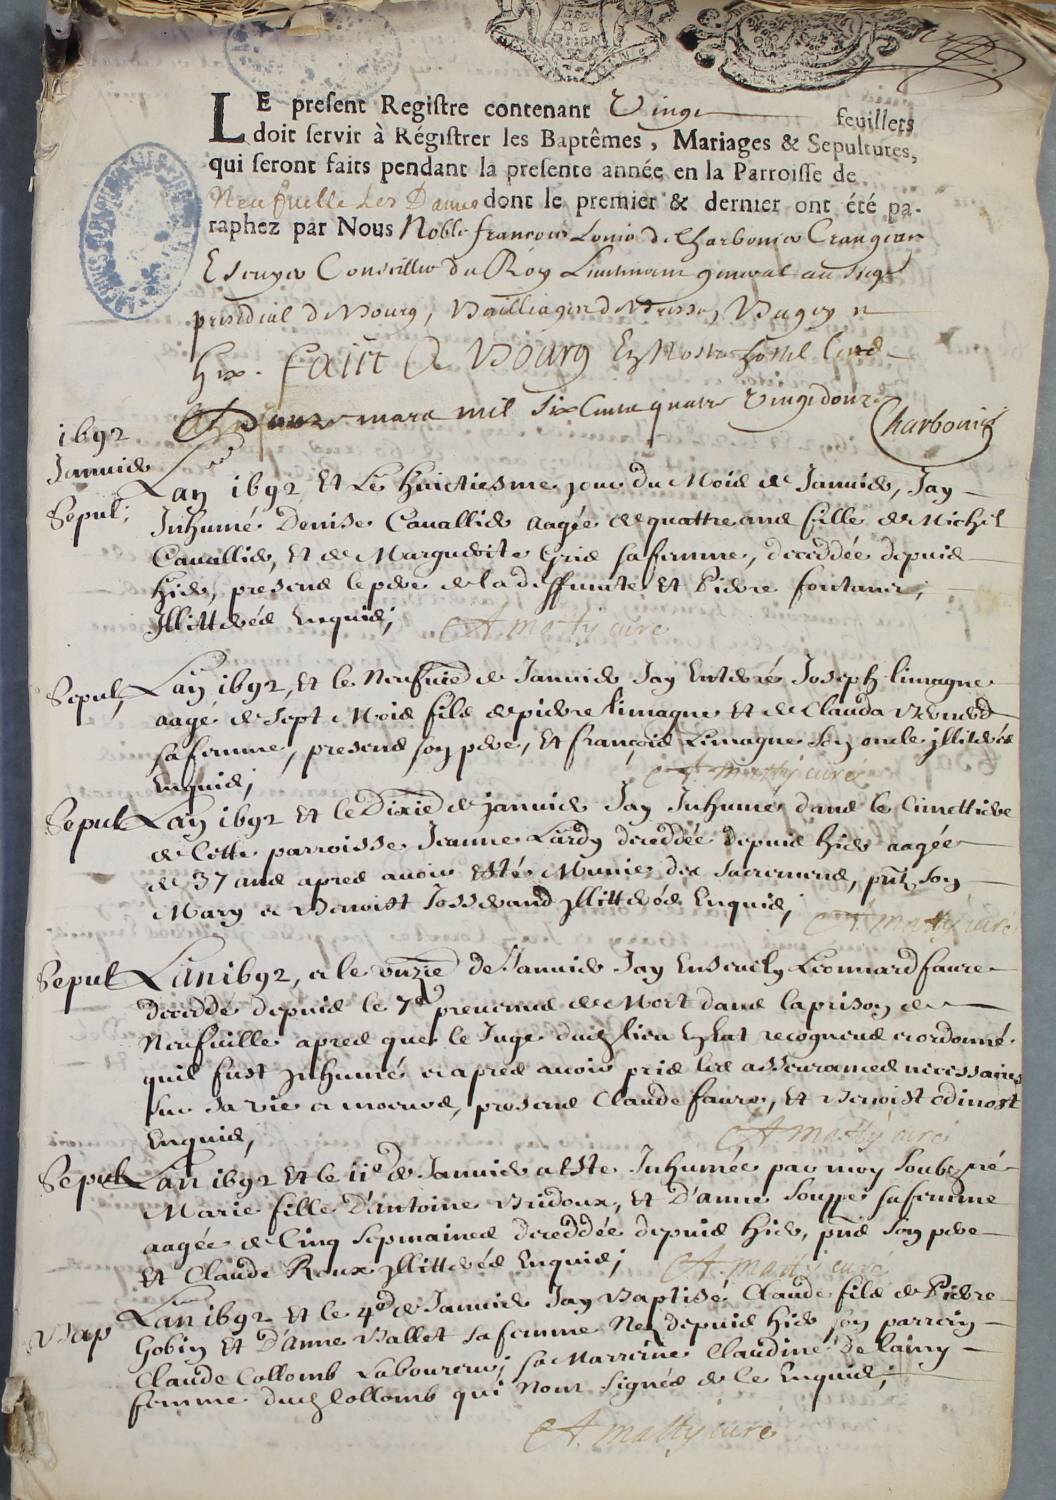 LE present Registre contenant Vingt feuillets
doit servir à Régistrer les Baptêmes, Mariages & Sepultures,
qui seront faits pendant la presente année en la Parroisse de
Neufuille Les Dames dont le premier & dernier ont été pa-
raphez par Nous Noble françois Louis de Charbonier Crangeac
Escuyer Conseiller du Roy Lieutenant general au siege
presidial de Bourg, Bailliages de Bresse, Bugey et
Gex. Faiit A Bourg En Nostre hostel
mars mil six Cents quatre Vingt douze Charbonier
1692
Januier
Lan 1692 Et Le huictiesme jour du Mois de Januier, Jay
Sepul: Inhumé Denise Cauallier aagée de quattre ans fille de Michel
Cauallier, Et de Marguerite Gris sa femme, decedée depuis
hier, presens le pere de la deffuncte Et Pierre fontanir,
Illitterés Enquis;
A. matty curé
Sepul, Lan 1692, Et le Neufuie de Januier Jay Enterré Joseph limagne
aagé de sept Mois fils de pierre limagne Et de Clauda
sa femme, presens son pere, Et françois Limagne son oncle jllitterés
Enquis;
A. matty curé
Sepul Lan 1692 Et le Dixie de januier Jay Inhumé dans le cimettiere
de Cette parroisse Jeanne Lardy decedée depuis hier aagée
de 37 ans apres auoir Estés Munie des sacremens, pnt son
Mary et Benoist Josserand jllitterés Enquis;
A. matty curé
Sepul Lan 1692, et le unzie de Januier Jay Enseuely Leonnard faure
decedé depuis le 7e preuenus de Mort dans la prison de
Neufuille apres que le Juge dudt lieu recogneus et ordonné
quil fust jnhumé et apres auoir pris les asseurances necessaires
sur sa vie et moeurs, presens Claude faure, Et Benoist odinost
Enquis;
A. matty curé
Sepul Lan 1692 Et le 11e de Januier a Esté Inhumée par moy soubzné
Marie fille D'antoine Bridoux, Et D'anne souppe sa femme
aagée de Cinq sepmaines decedée depuis hier, pns son pere
Et Claude Roux jllitterés Enquis;
A. matty curé
Bap Lan 1692 Et le 4e de Januier Jay Baptisé Claude fils de Pierre
Gobin Et D'Anne Ballet sa femme Nez depuis hier son parrein
Claude Collomb Laboureur, sa Marreine Claudine De lainy
femme dudt Collomb qui Nont signés de ce Enquis;
A. matty curé